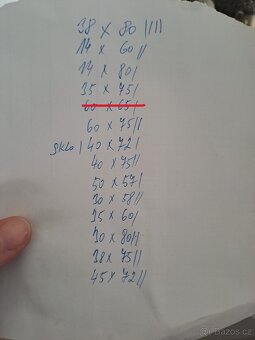 38 x 80 ||||
14 x 60 ||
14 x 80 |
35 x 75 |
60 x 65 |
60 x 75 ||
sklo | 40 x 72 |
40 x 75 ||
50 x 57 |
30 x 58 ||
35 x 60 |
30 x 80 ||
38 x 75 ||
45 x 72 ||
Bazos.cz